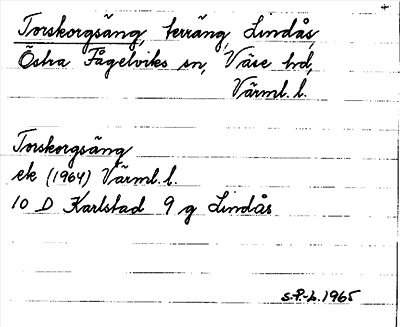 Torskorgsäng, terräng, Lindås,
Östra Fågelviks sn, Väse hd,
Värml. l.
Torskorgsäng
ek (1964) Värml. l.
10 D Karlstad 9 g Lindås
S.P.-L. 1965